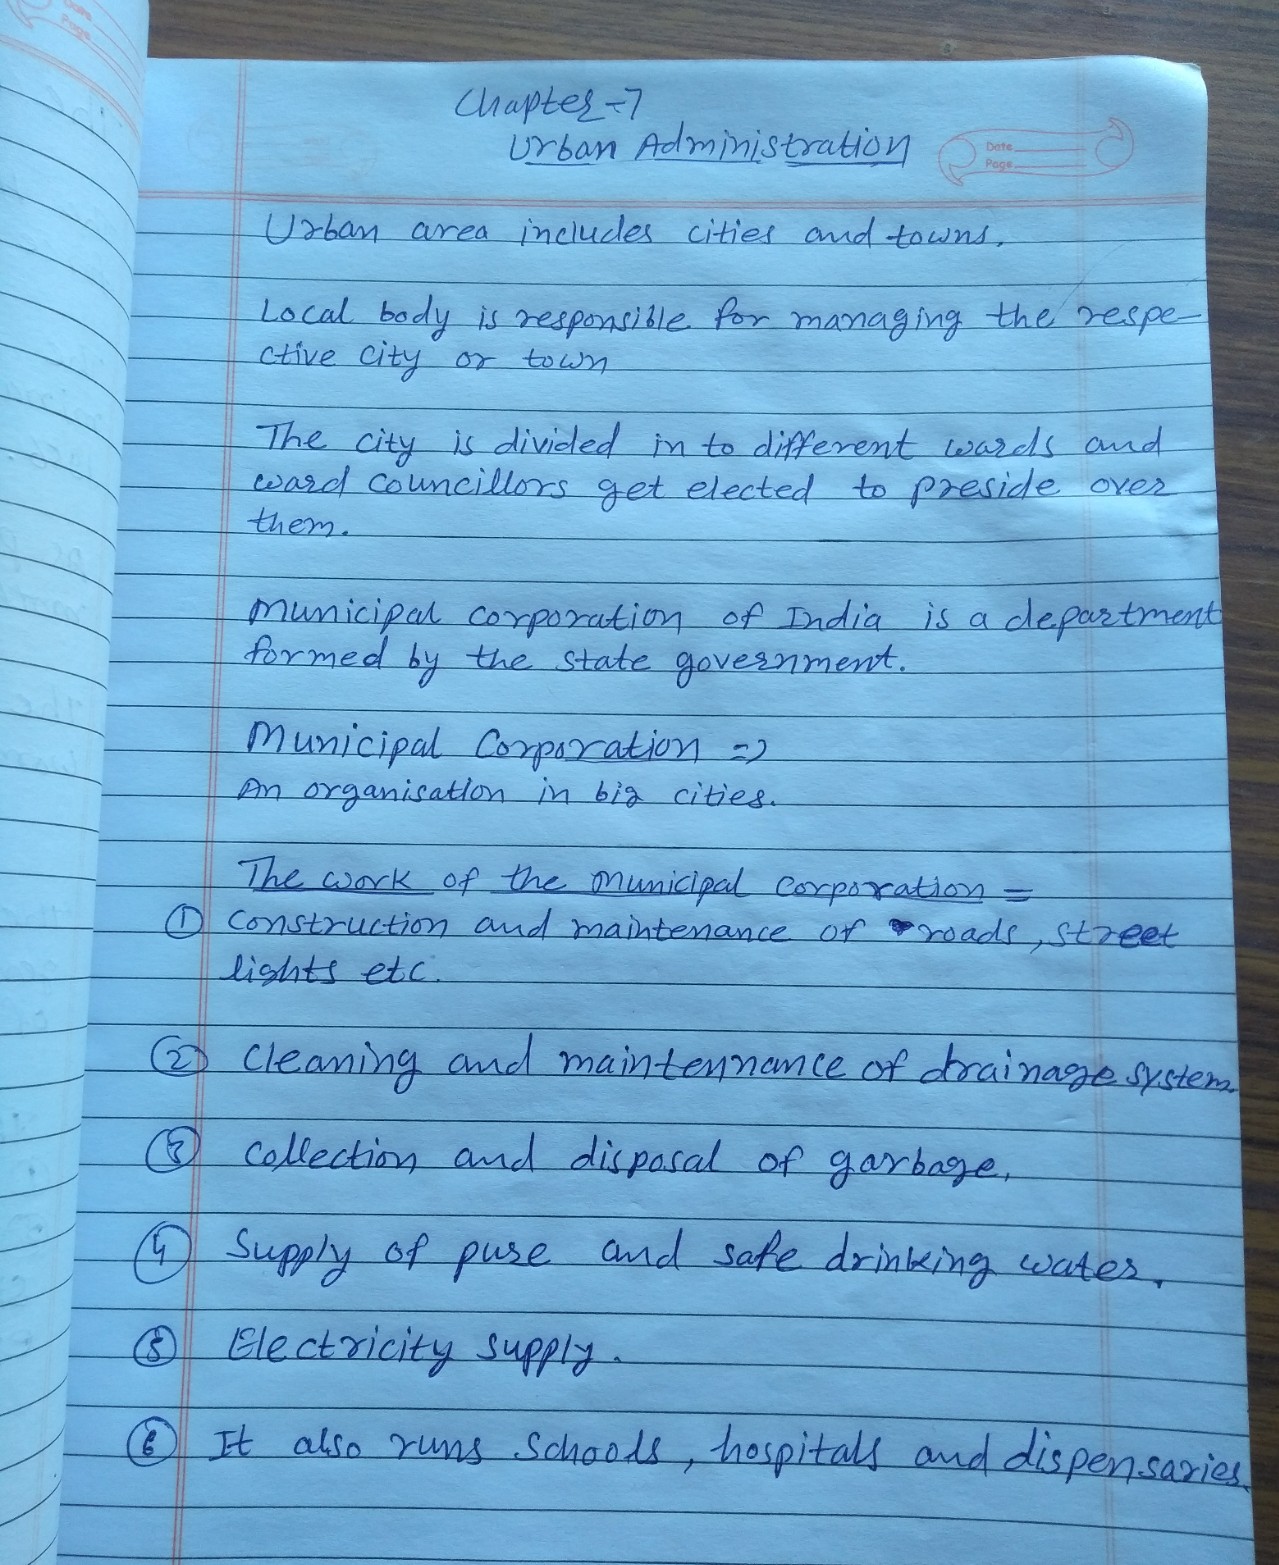 Chapter-7
Urban Administration
Date
Page
Urban area includes cities and towns.
Local body is responsible for managing the respe-
ctive city or town
The city is divided in to different wards and
ward councillors get elected to preside over
them.
Municipal corporation of India is a department
formed by the state government.
Municipal Corporation =>
An organisation in big cities.
The work of the municipal corporation =
① Construction and maintenance of roads, street
lights etc.
② Cleaning and maintennance of drainage system.
③ Collection and disposal of garbage.
④ Supply of pure and safe drinking water.
⑤ Electricity supply.
⑥ It also runs schools, hospitals and dispensaries.